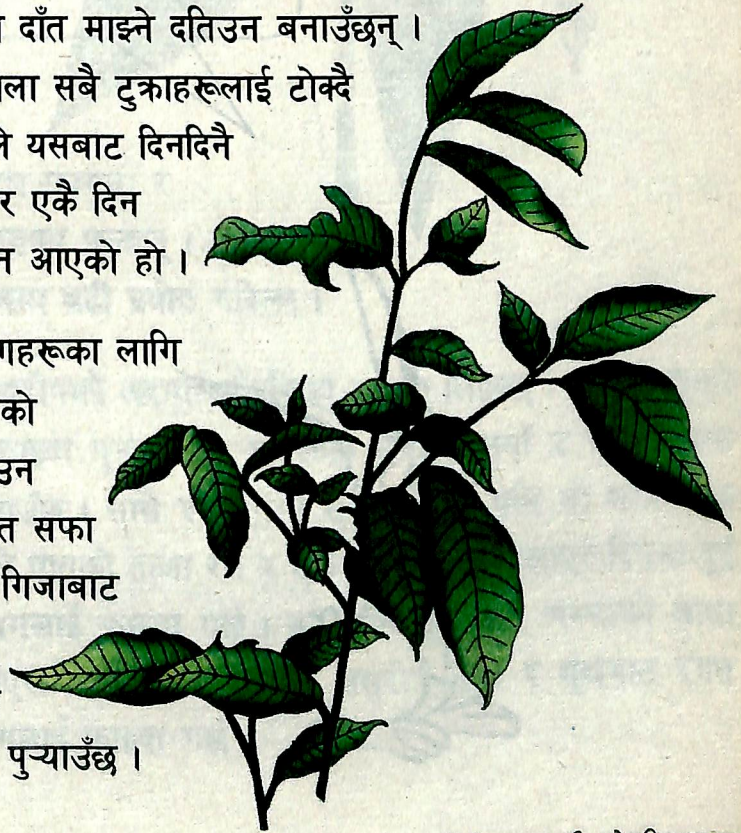 दाँत माझ्ने दतिउन बनाउँछन् ।
सबै टुक्राहरूलाई टोक्दै
यसबाट दिनदिनै
र एकै दिन
आएको हो ।
लागि
को
सफा
गिजाबाट
पुऱ्याउँछ ।